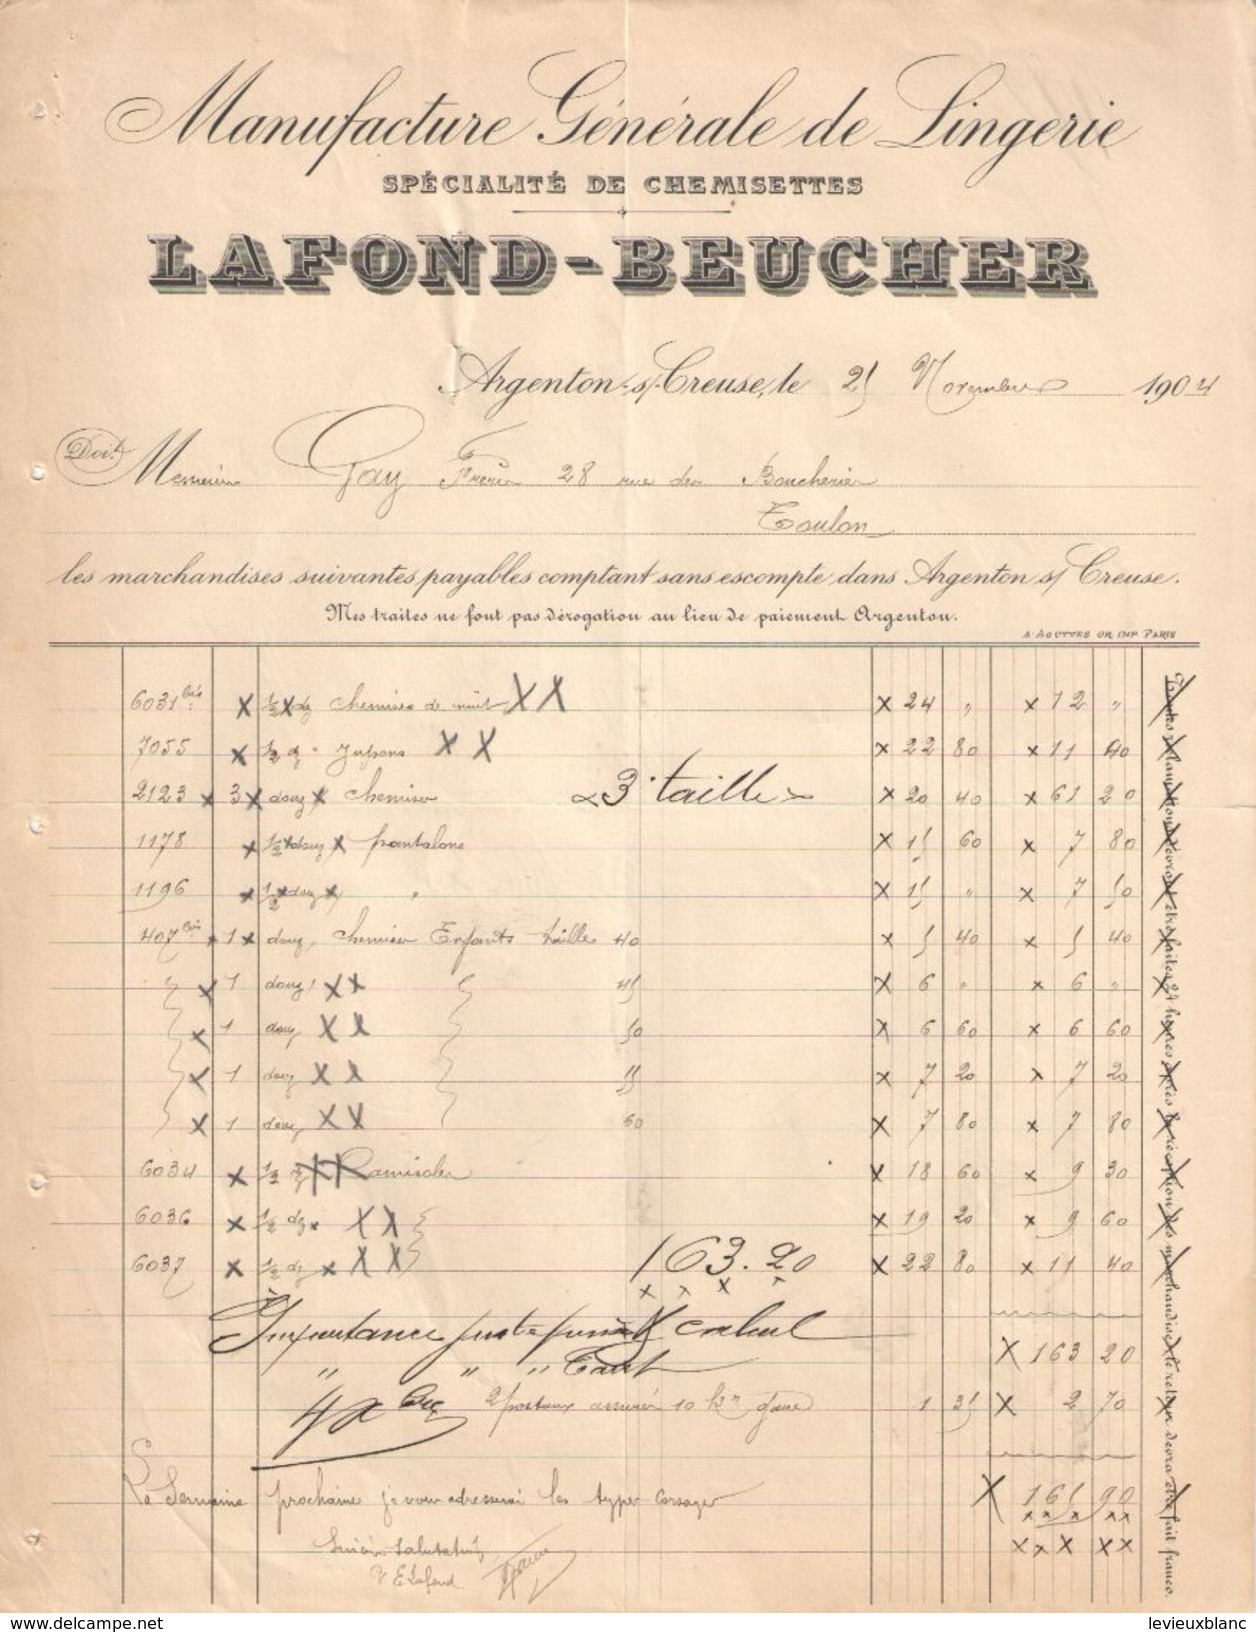 Manufacture Générale de Lingerie
SPÉCIALITÉ DE CHEMISETTES
LAFOND-BEUCHER
Argenton-s/-Creuse, le 25 Novembre 1904
Doit Messieurs Gay Frères 28 rue des Boucheries
Toulon
les marchandises suivantes payables comptant sans escompte dans Argenton s/ Creuse.
Mes traites ne font pas dérogation au lieu de paiement Argenton.
6031 bis X 1/2 X dz chemises de nuit X X X 24 " X 12 "
7055 X 1/2 dz " Jupons X X X 22 80 X 11 40
2123 X 3 X douz X chemises 3 taille X 20 40 X 61 20
1178 X 1/2 X douz X pantalons X 15 60 X 7 80
1196 X 1/2 X douz X " X 15 " X 7 50
407 bis X 1 X douz, chemises Enfants taille 40 X 5 40 X 5 40
X 1 douz X X 45 X 6 " X 6 "
X 1 douz X X 50 X 6 60 X 6 60
X 1 douz X X 55 X 7 20 X 7 20
X 1 douz X X 60 X 7 80 X 7 80
6034 X 1/2 dz X X Camisoles X 18 60 X 9 30
6036 X 1/2 dz X X X X 19 20 X 9 60
6037 X 1/2 dz X X X 163.20 X 22 80 X 11 40
Importance juste calcul X 163 20
" " "
2 postaux assurés 10 k gare 1 35 X 2 70
La Semaine prochaine je vous adresserai les types corsages X 165 90
salutations
E Lafond
Toutes réclamations devront être faites 24 heures après la réception des marchandises le retour devra être fait franco.
levieuxblanc